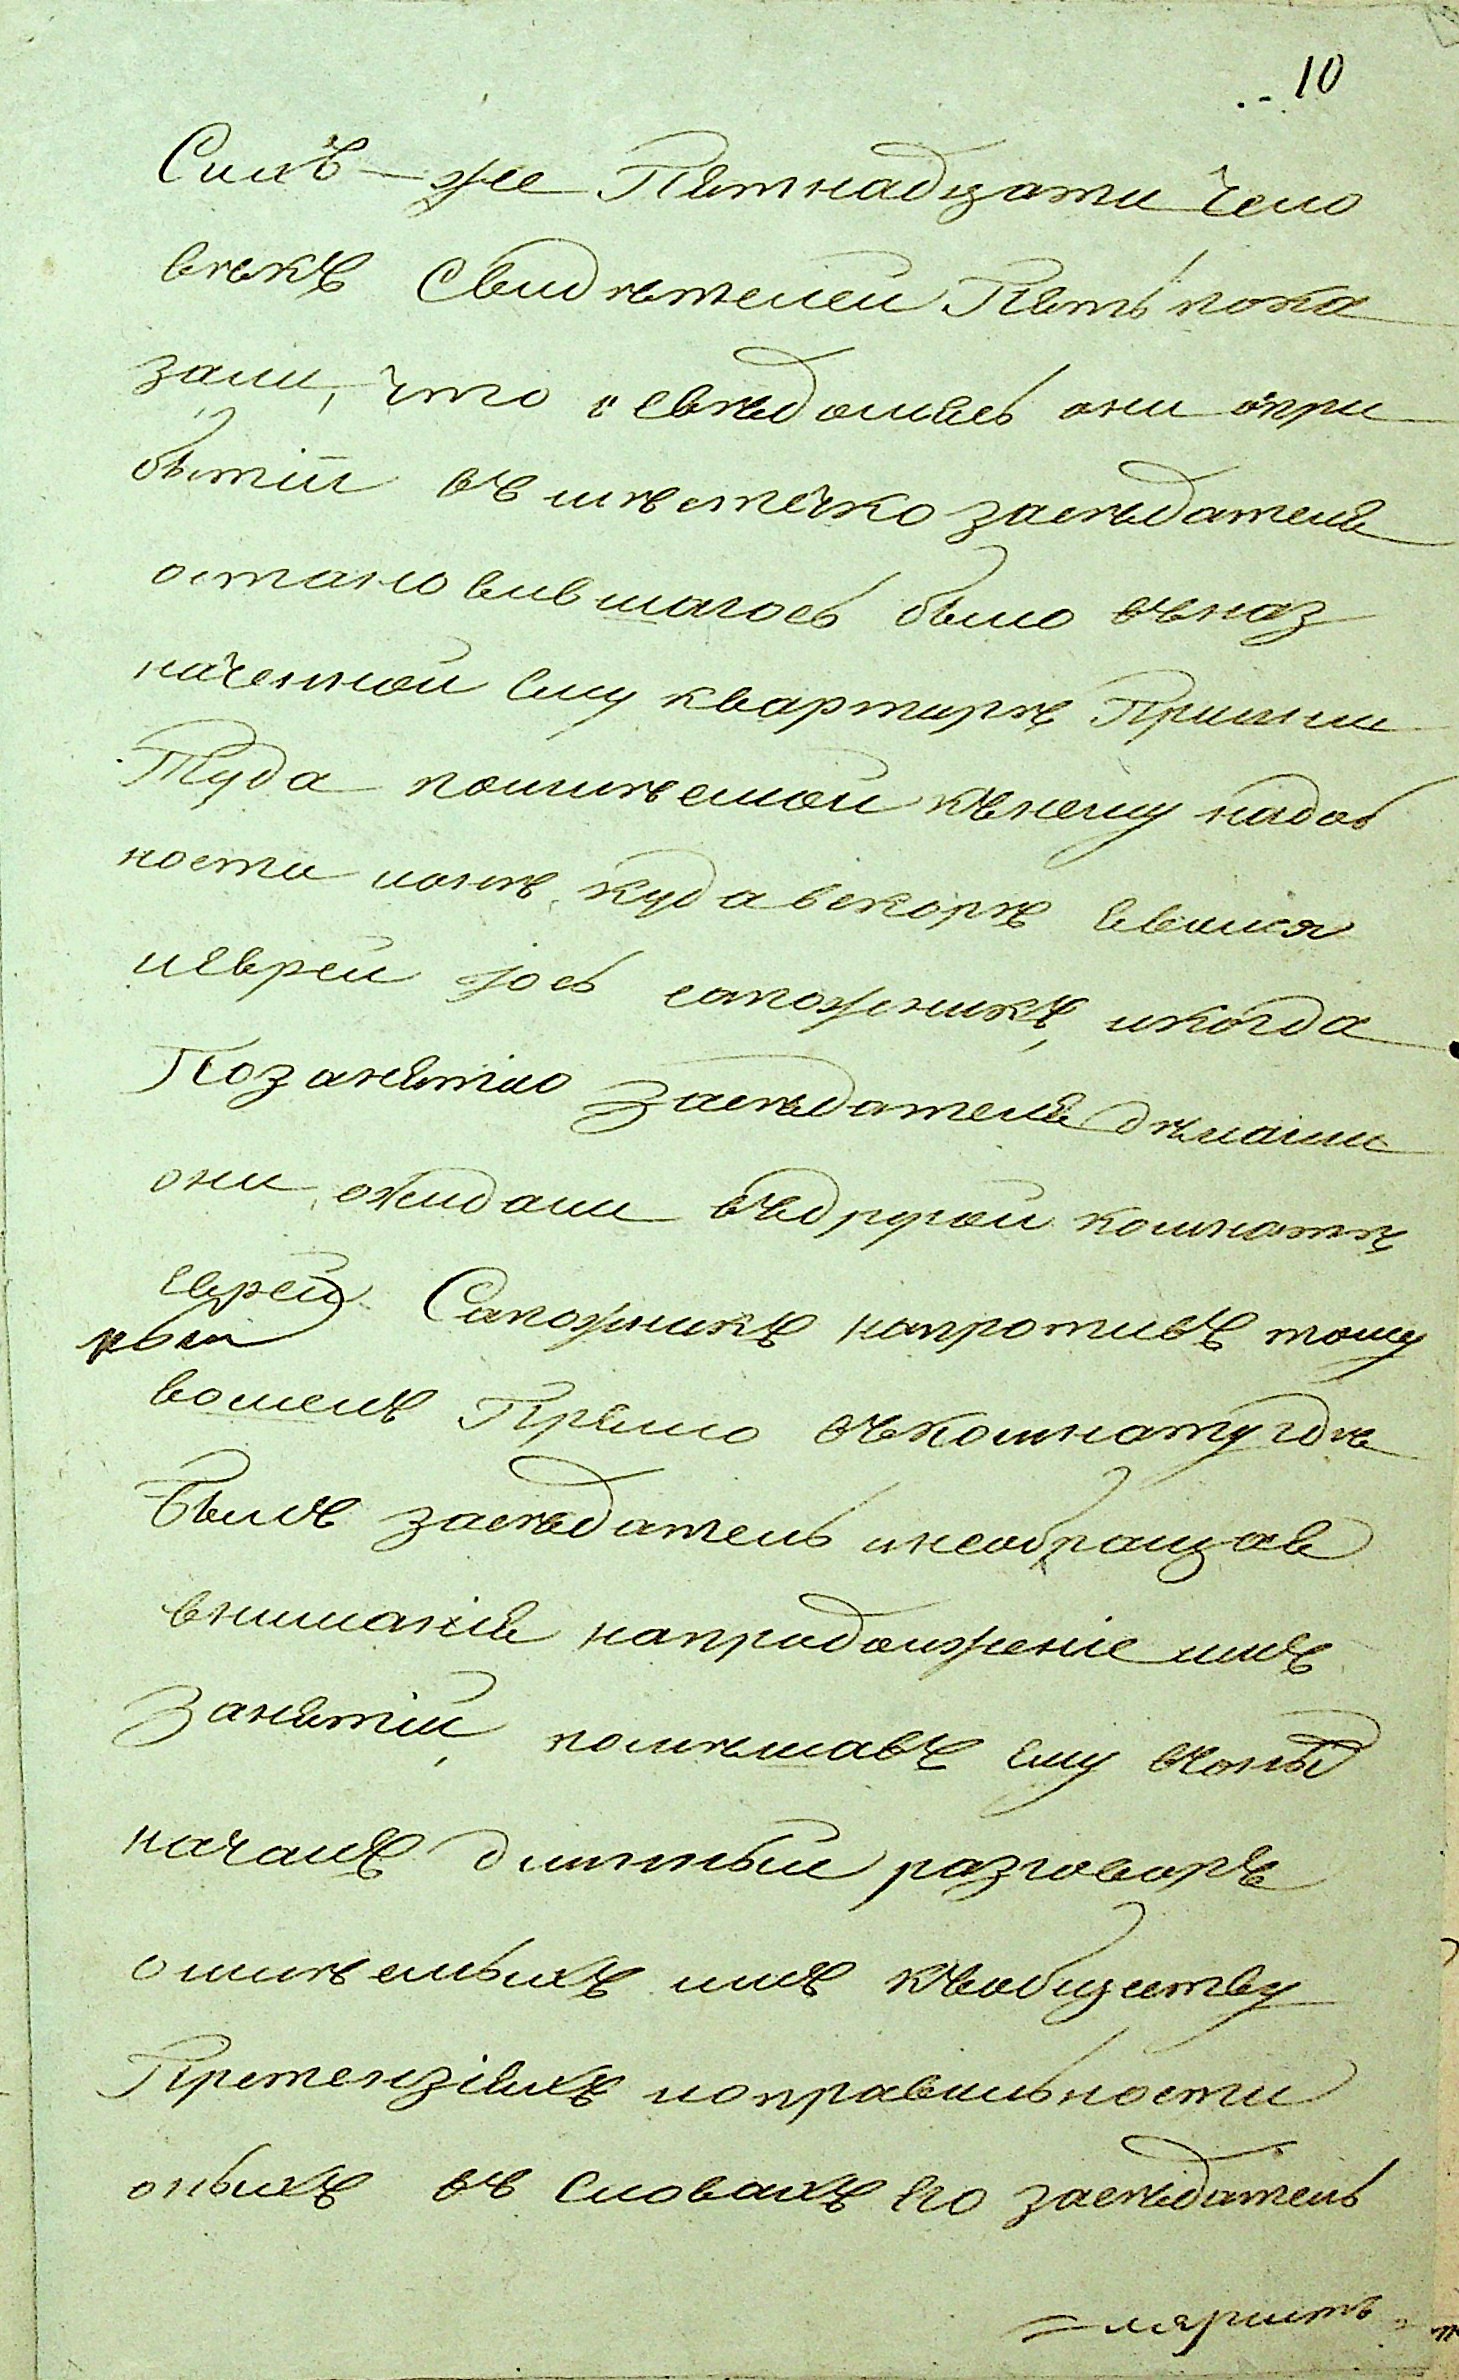 10
Сихъ-же Пятнадцати чело
вѣкъ Свидѣтелей Пять пока
зали, что освѣдомясь они опри
бытіи въ мѣстечко засѣдателя
остановившагось было вназ
наченной ему квартирѣ Пришли
Туда поимѣемой кънему надоб
ности куда вскорѣ явился
иеврей Іось сапожникъ, икогда
Позанятію Засѣдателя дѣлами
они ожидали въдругой комнатѣ
еврей Сапожникъ напротивъ тому
вошелъ Прямо въкомнату гдѣ
Былъ засѣдатель инеобращая
вниманія напродолженіе имъ
Занятій, помѣшавъ ему
началъ длинный разговоръ
оимѣемыхъ имъ къобществу
Претензіяхъ ноправильности
оныхъ въ словахъ его засѣдатель